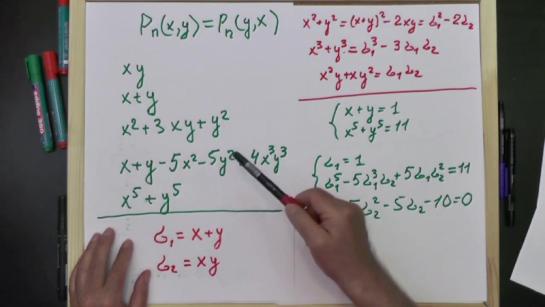 Pₙ(x,y) = Pₙ(y,x)
xy
x+y
x² + 3xy + y²
x+y-5x²-5y² 4x³y³
x⁵ + y⁵
σ₁ = x+y
σ₂ = xy
x²+y² = (x+y)² - 2xy = σ₁² - 2σ₂
x³+y³ = σ₁³ - 3σ₁σ₂
x²y+xy² = σ₁σ₂
{ x+y = 1
x⁵+y⁵ = 11
{ σ₁ = 1
σ₁⁵ - 5σ₁³σ₂ + 5σ₁σ₂² = 11
5σ₂² - 5σ₂ - 10 = 0